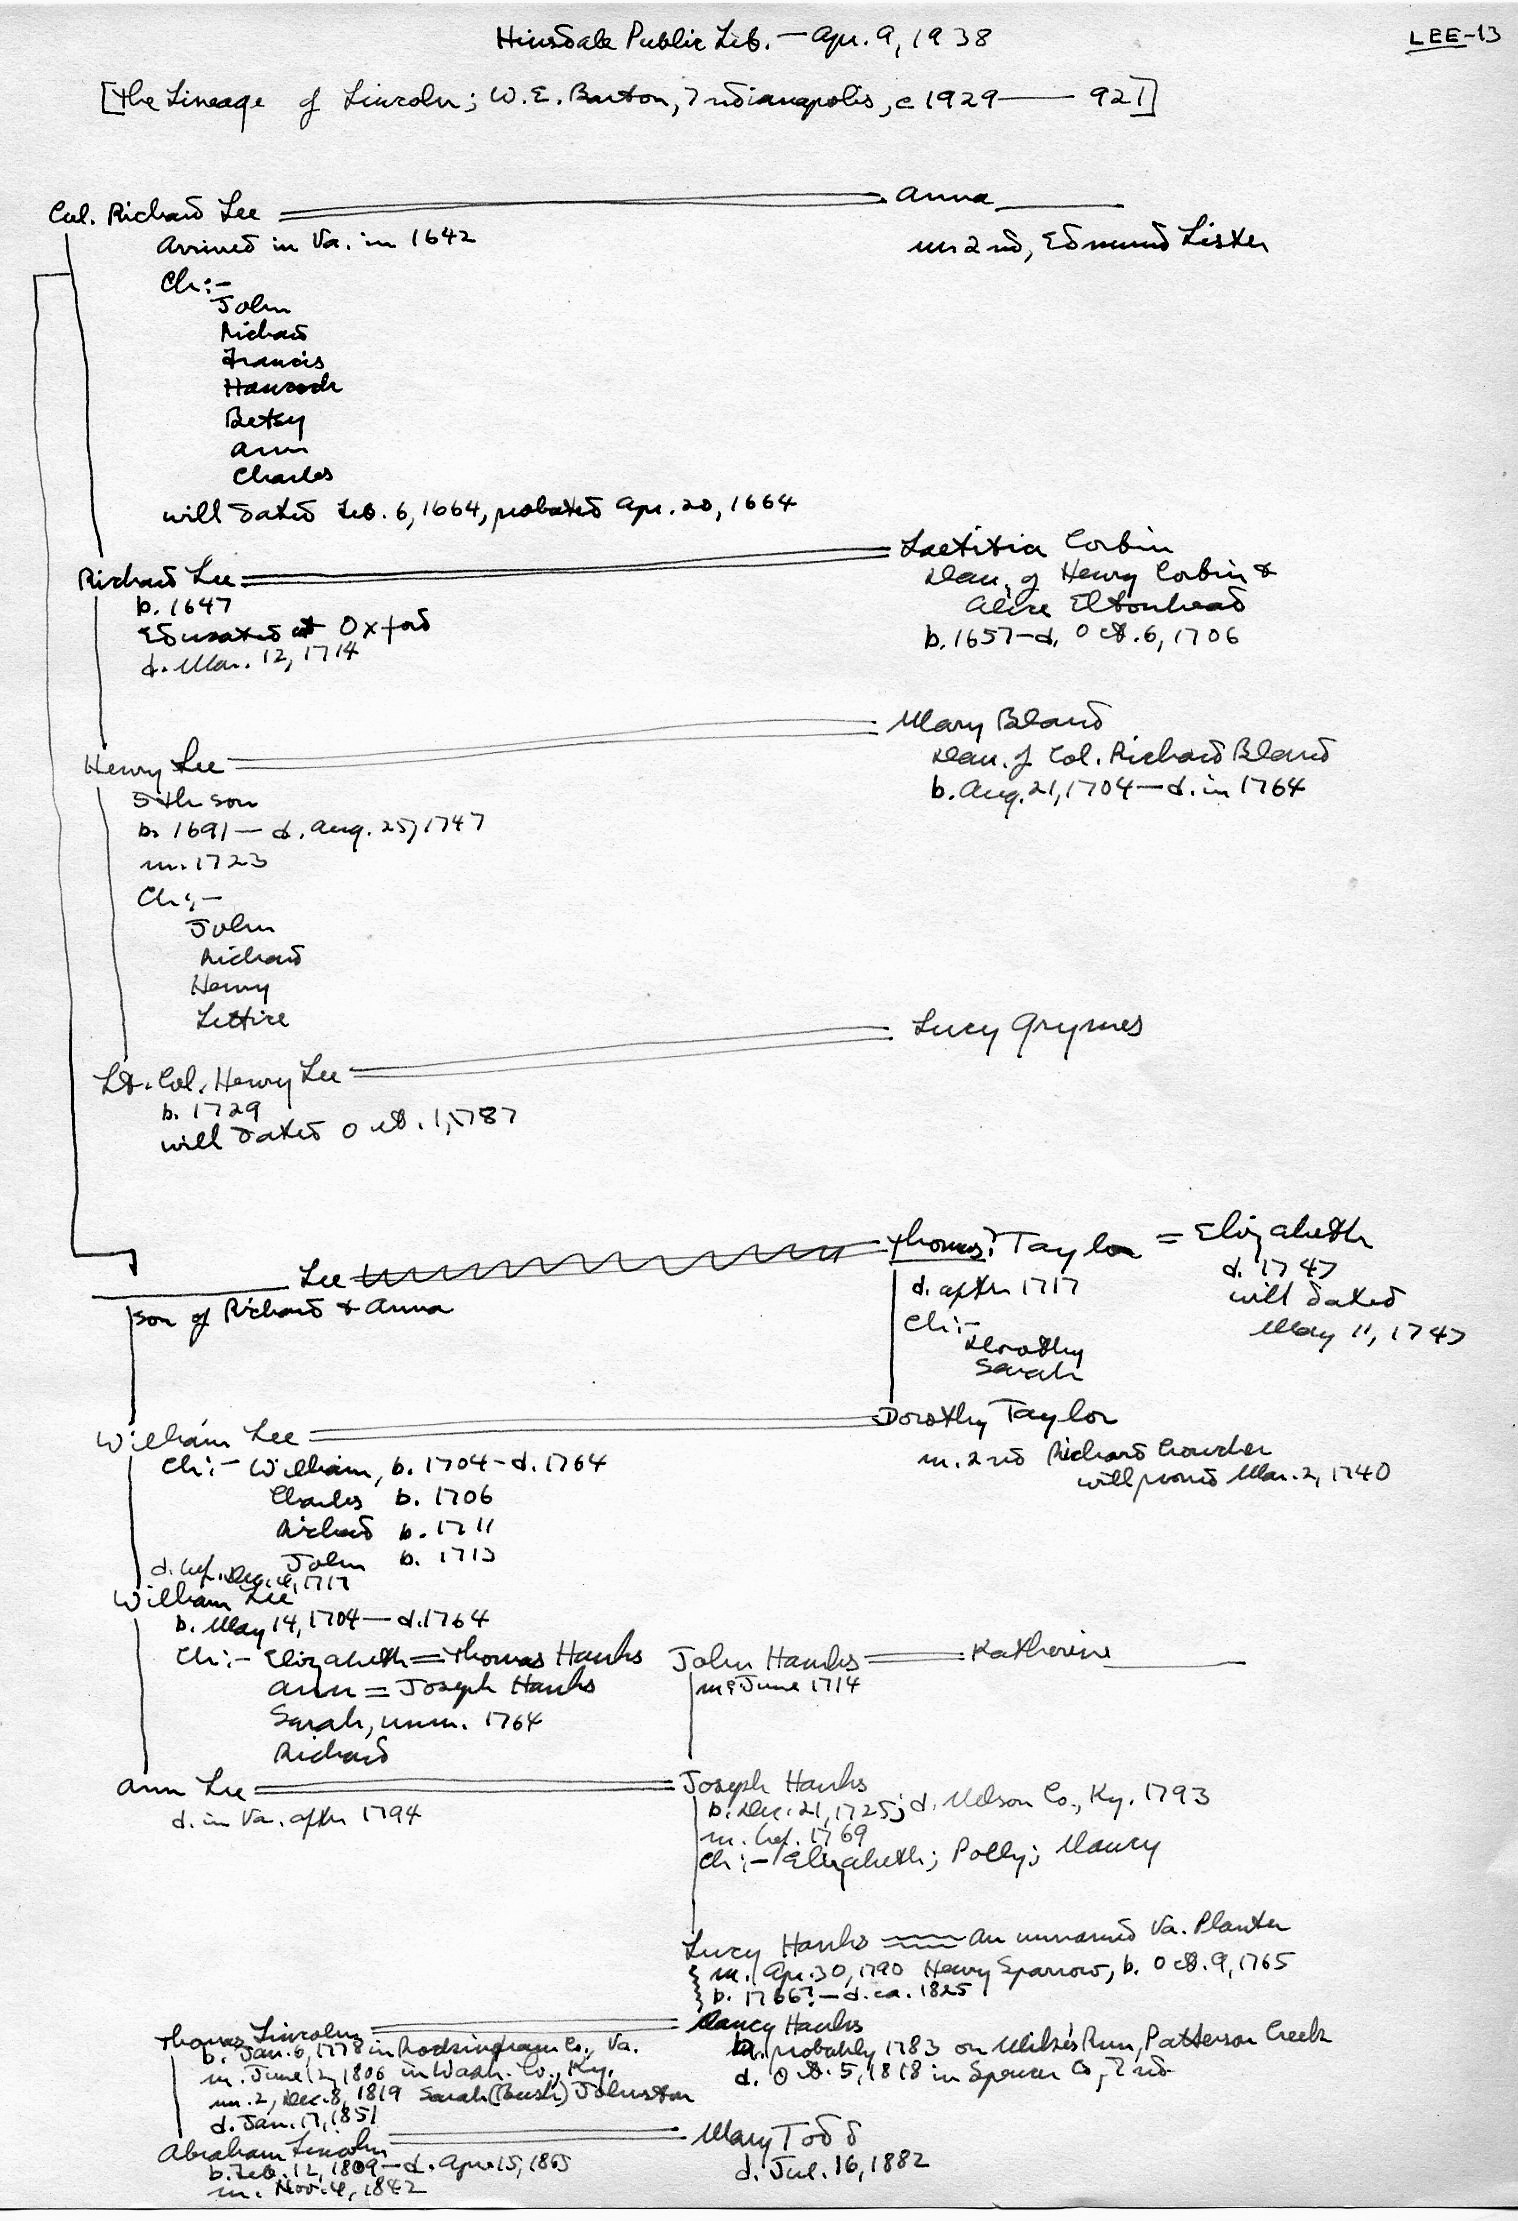 Hinsdale Public Lib. — Apr. 9, 1938
LEE-13
[The Lineage of Lincoln; W. E. Barton, Indianapolis, c 1929 —— 921]
Col. Richard Lee
Anna
Arrived in Va. in 1642
m 2nd, Edmund Lister
Ch:-
John
Richard
Francis
Hancock
Betsy
Ann
Charles
will dated Feb. 6, 1664, probated Apr. 20, 1664
Richard Lee
Laetitia Corbin
b. 1647
Dau. of Henry Corbin &
Educated at Oxford
Alice Eltonhead
d. Mar. 12, 1714
b. 1657 – d. Oct. 6, 1706
Henry Lee
Mary Bland
5th son
Dau. of Col. Richard Bland
b. 1691 — d. Aug. 25, 1747
b. Aug. 21, 1704 — d. in 1764
m. 1723
Ch:-
John
Richard
Henry
Lettice
Lt. Col. Henry Lee
Lucy Grymes
b. 1729
will dated Oct. 1, 1787
Lee
Thomas? Taylor = Elizabeth
son of Richard & Anna
d. after 1717
d. 1747
Ch:-
will dated
Dorothy
May 11, 1747
Sarah
William Lee
Dorothy Taylor
Ch:- William, b. 1704 – d. 1764
m. 2nd Richard Crowder
Charles b. 1706
will proved Mar. 2, 1740
Richard b. 1711
John b. 1713
d. bef. Dec. 4, 1717
William Lee
b. May 14, 1704 — d. 1764
Ch:- Elizabeth = Thomas Hanks
Ann = Joseph Hanks
Sarah, unm. 1764
Richard
John Hanks
Katherine
m. June 1714
Ann Lee
Joseph Hanks
d. in Va. after 1794
b. Dec. 21, 1725; d. Nelson Co., Ky. 1793
m. bef. 1769
Ch:- Elizabeth; Polly; Nancy
Lucy Hanks
An unnamed Va. Planter
m. Apr. 30, 1790 Henry Sparrow, b. Oct. 9, 1765
b. 1766? — d. ca. 1825
Thomas Lincoln
Nancy Hanks
b. Jan. 6, 1778 in Rockingham Co., Va.
b. probably 1783 on Mike's Run, Patterson Creek
m. June 12, 1806 in Wash. Co., Ky.
d. Oct. 5, 1818 in Spencer Co, Ind.
m. 2, Dec. 8, 1819 Sarah (Bush) Johnston
d. Jan. 17, 1851
Abraham Lincoln
Mary Todd
b. Feb. 12, 1809 — d. Apr. 15, 1865
d. Jul. 16, 1882
m. Nov. 4, 1842